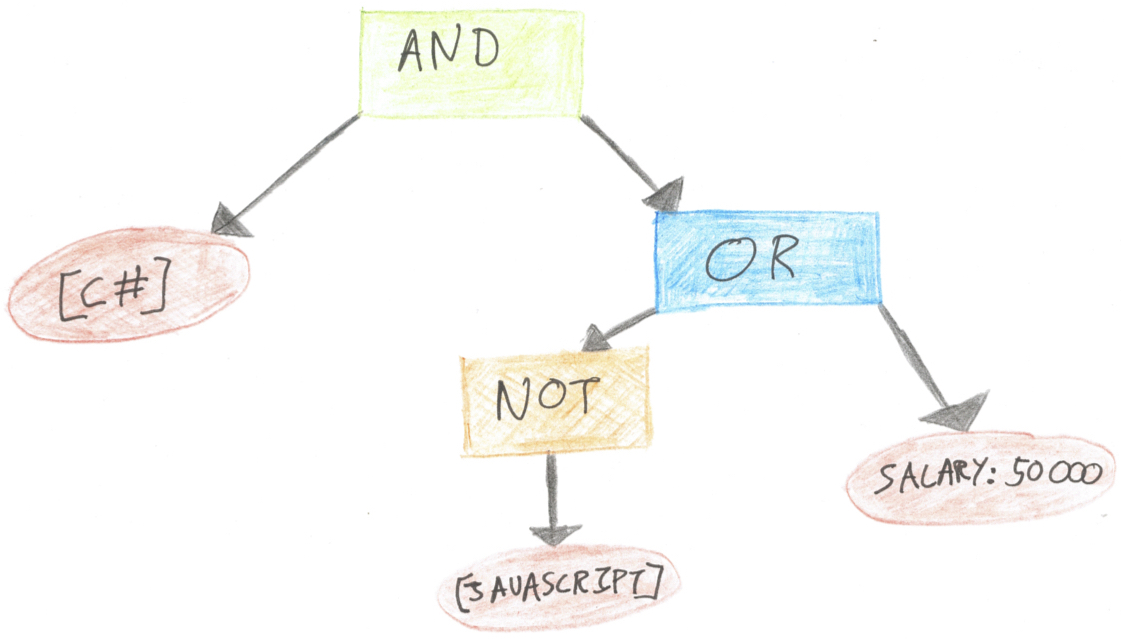 AND
[C#]
OR
NOT
SALARY: 50000
[JAVASCRIPT]